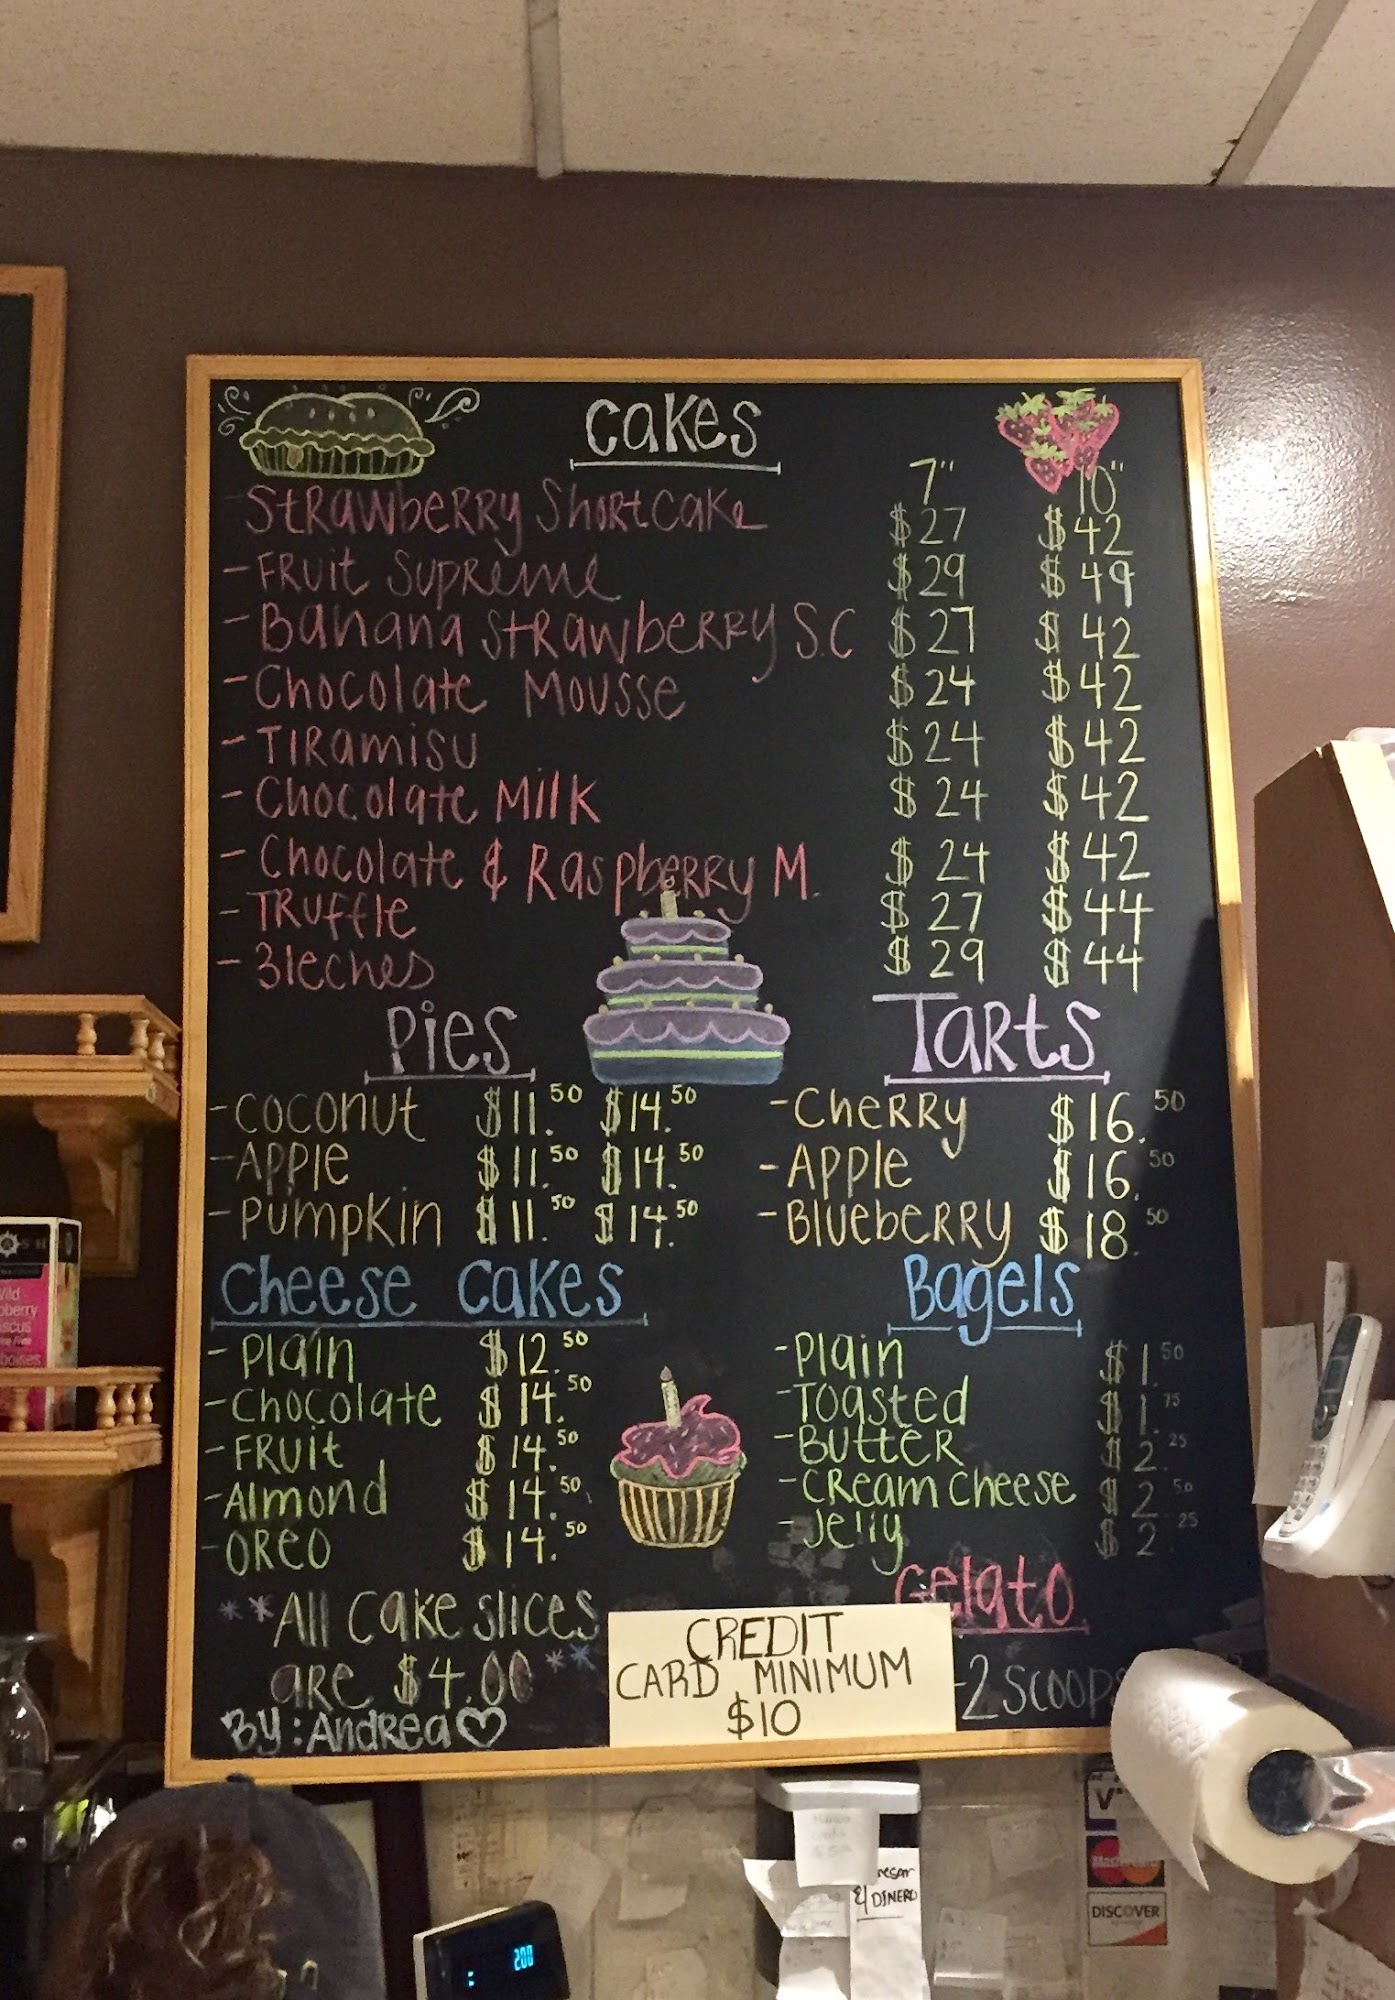 Cakes
7" 10"
Strawberry Shortcake $27 $42
- Fruit Supreme $29 $49
- Banana Strawberry S.C $27 $42
- Chocolate Mousse $24 $42
- Tiramisu $24 $42
- Chocolate Milk $24 $42
- Chocolate & Raspberry M. $24 $42
- Truffle $27 $44
- 3leches $29 $44
Pies
- Coconut $11.50 $14.50
- Apple $11.50 $14.50
- Pumpkin $11.50 $14.50
Tarts
- Cherry $16.50
- Apple $16.50
- Blueberry $18.50
Cheese Cakes
- Plain $12.50
- Chocolate $14.50
- Fruit $14.50
- Almond $14.50
- Oreo $14.50
Bagels
- Plain $1.50
- Toasted $1.75
- Butter $2.25
- Cream Cheese $2.50
- Jelly $2.25
**All cake slices
are $4.00**
By: Andrea
Gelato
- 2 scoops
CREDIT
CARD MINIMUM
$10
DINERO
MasterCard
DISCOVER
200